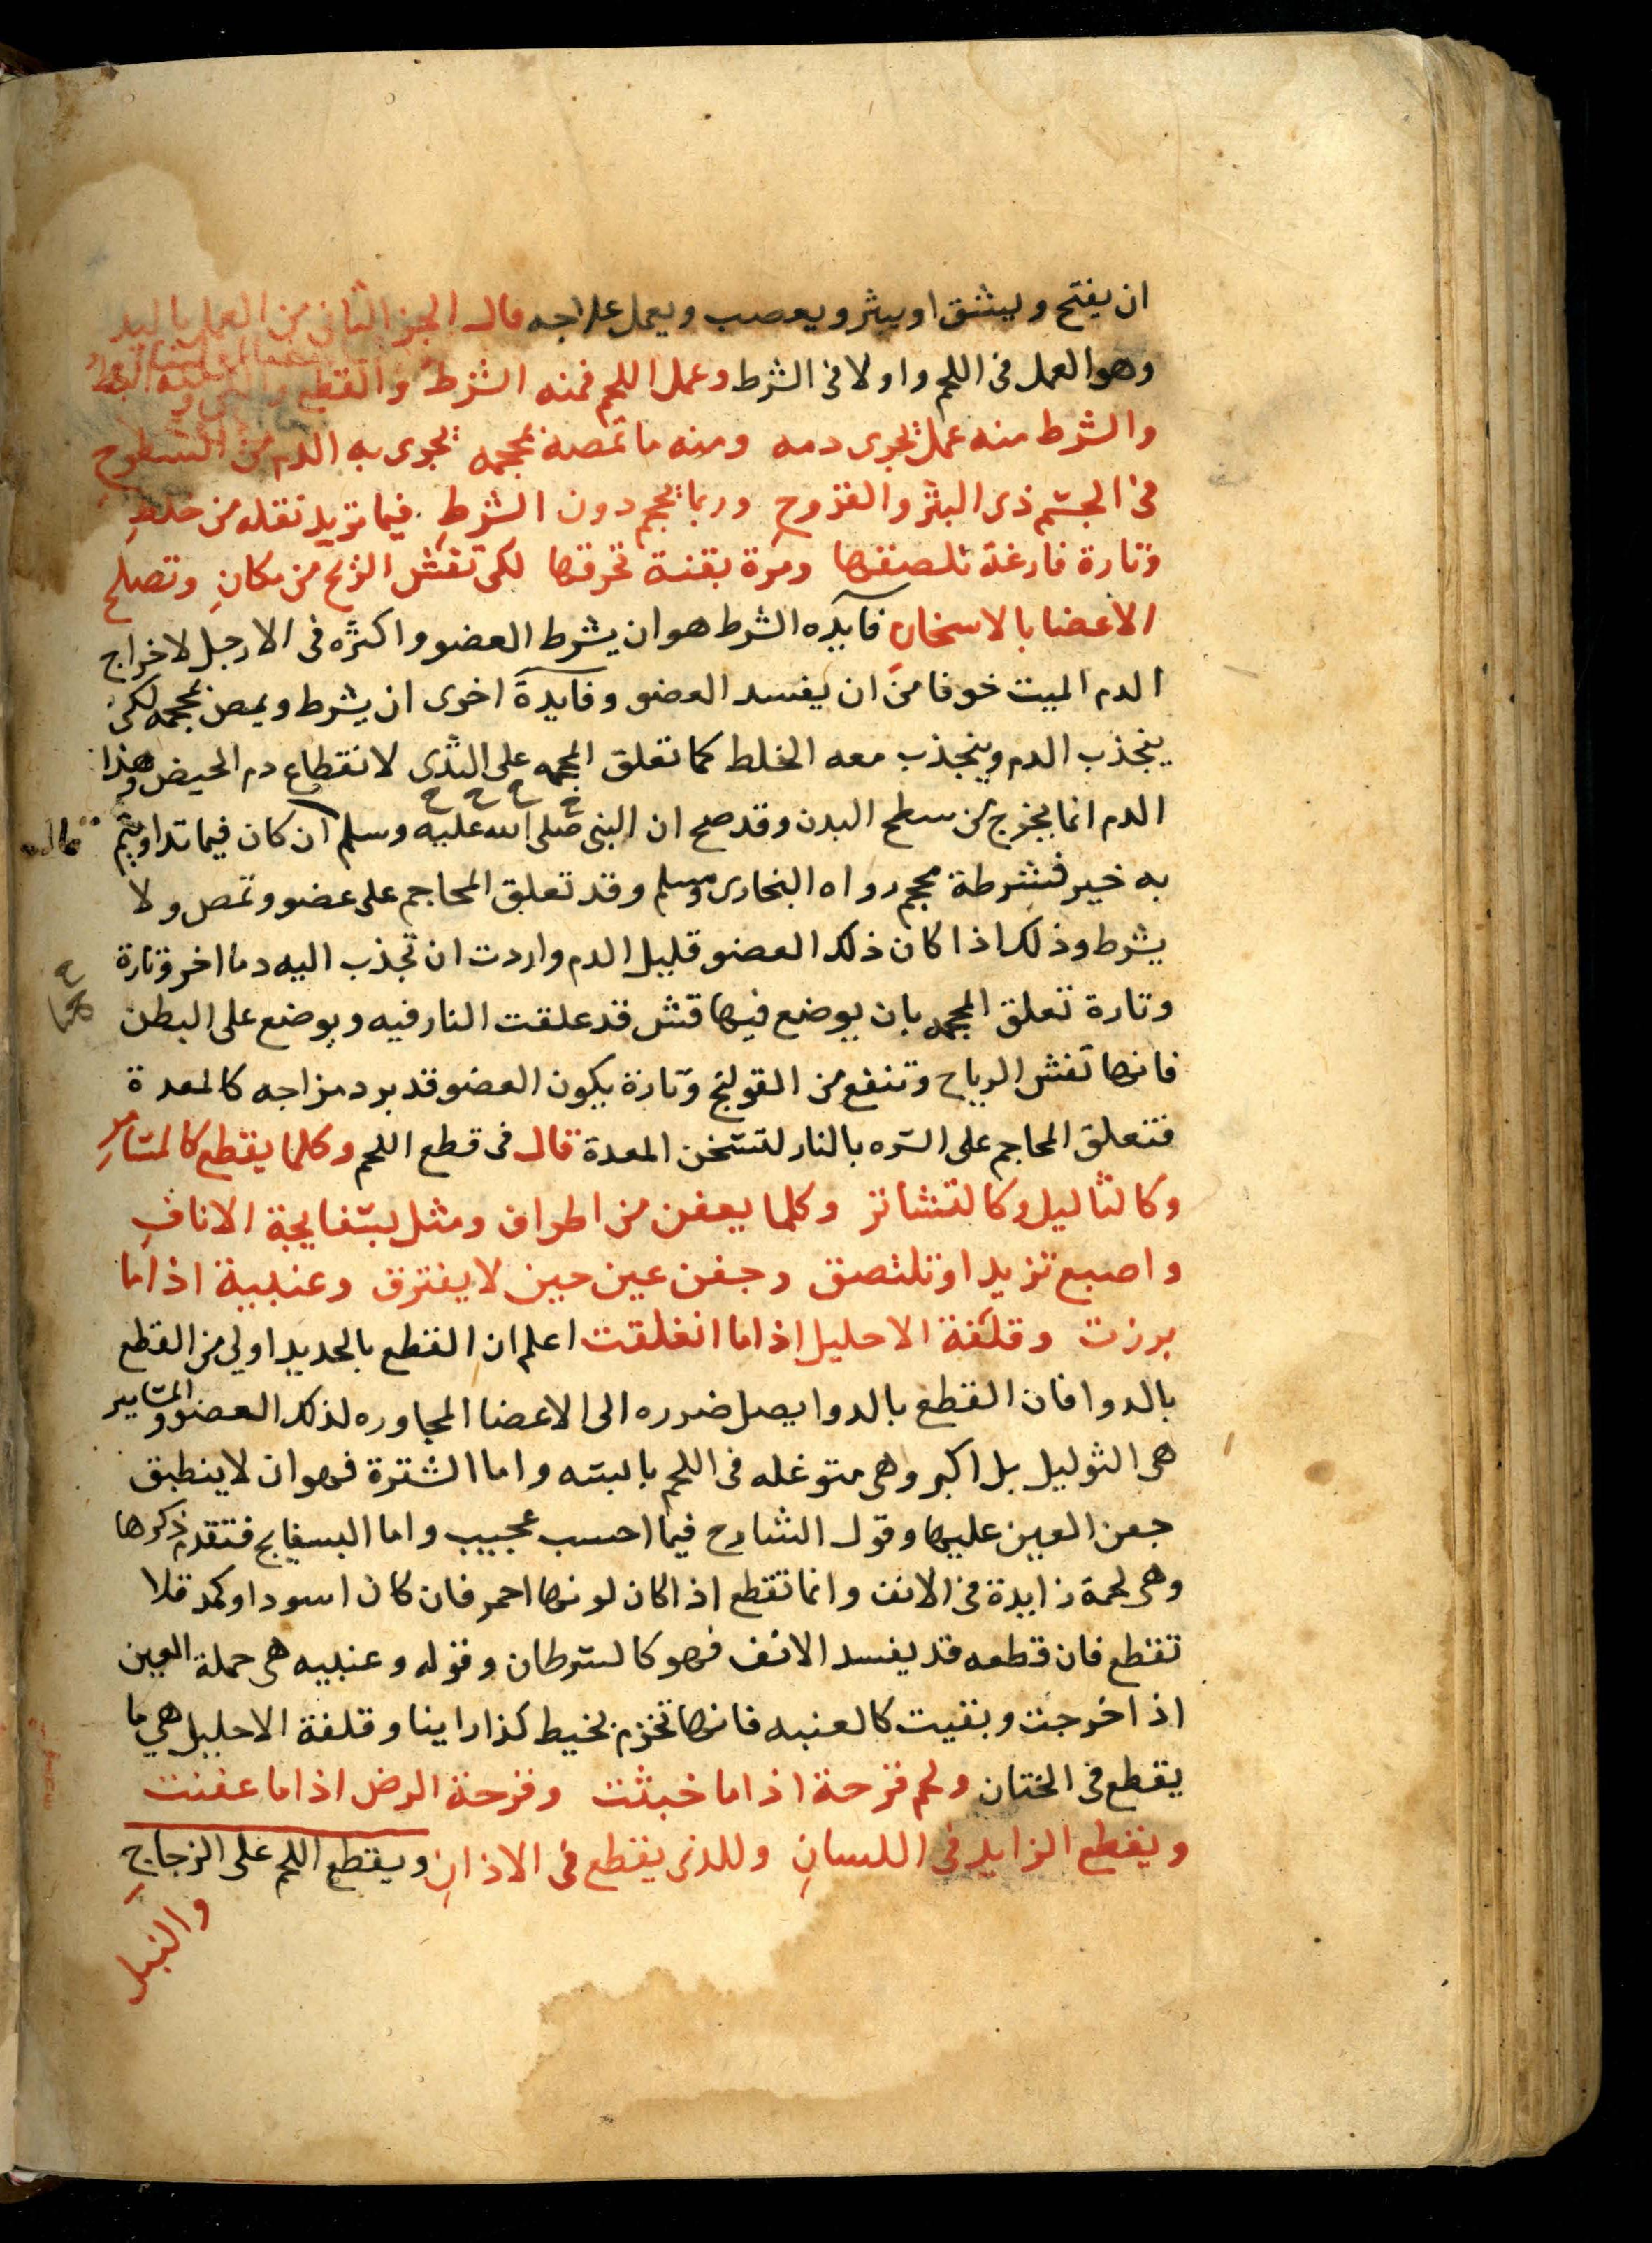 ان يفتح ويشق او يبثر ويعصب ويعمل علاجه قال الجز الثانى من العمل باليد
وهو العمل فى اللحم واولا فى الشرط وعمل اللحم فمنه الشرط والقطع
والشرط منه عمل يجرى دمه ومنه ما تمصه بمحجمه يجرى به الدم من السطوح
فى الجسم ذى البثر والقروح وربما يحجم دون الشرط فيما تريد نقله من خلط
وتارة فارغة تلصقها ومرة بقنة تحرقها لكى تفش الريح من مكان وتصلح
الاعضا بالاسخان فايده الشرط هو ان يشرط العضو واكثره فى الارجل لاخراج
الدم الميت خوفا من ان يفسد العضو وفايدة اخرى ان يشرط ويمص بمحجمه لكى
ينجذب الدم وينجذب معه الخلط كما تعلق المحجمه على الثدى لانقطاع دم الحيض وهذا
الدم انما يخرج من سطح البدن وقد صح ان النبى صلى الله عليه وسلم قال ان كان فيما تداويتم
به خير فشرطة محجم رواه البخارى ومسلم وقد تعلق المحاجم على عضو وتمص ولا
يشرط وذلك اذا كان ذلك العضو قليل الدم واردت ان تجذب اليه دما اخر وتارة
وتارة تعلق المحجمه بان يوضع فيها قش قد علقت النار فيه ويوضع على البطن
فانها تفش الرياح وتنفع من القولنج وتارة يكون العضو قد برد مزاجه كالمعدة
فتعلق المحاجم على السره بالنار لتسخن المعدة قال فى قطع اللحم وكلما يقطع كالمسامير
وكالثاليل وكالقشاتر وكلما يعفن من اطراف ومثل بسفايجة الاناف
واصبع تزيد او تلتصق وجفن عين حين لا يفترق وعنبية اذا ما
برزت وقلفة الاحليل اذا ما انغلقت اعلم ان القطع بالحديد اولى من القطع
بالدوا فان القطع بالدوا يصل ضرره الى الاعضا المجاوره لذلك العضو والمسامير
هى الثوليل بل اكبر وهى متوغله فى اللحم يابسه واما الشترة فهو ان لا ينطبق
جعن العين عليها وقول الشارح فيما احسب عجيب واما البسفايج فتقدم ذكرها
وهى لحمة زايدة فى الانف وانما تقطع اذا كان لونها احمر فان كان اسود او كمد فلا
تقطع فان قطعه قد يفسد الانف فهو كالسرطان وقوله وعنبيه هى حملة العين
اذا خرجت وبقيت كالعنبه فانها تخزم بخيط كذا راينا وقلفة الاحليل هى ما
يقطع فى الختان ولحم قرحة اذا ما خبثت وقرحة الرض اذا ما عفنت
ويقطع الزايد فى اللسان وللذى يقطع فى الاذان ويقطع اللحم على الزجاج
والنبل